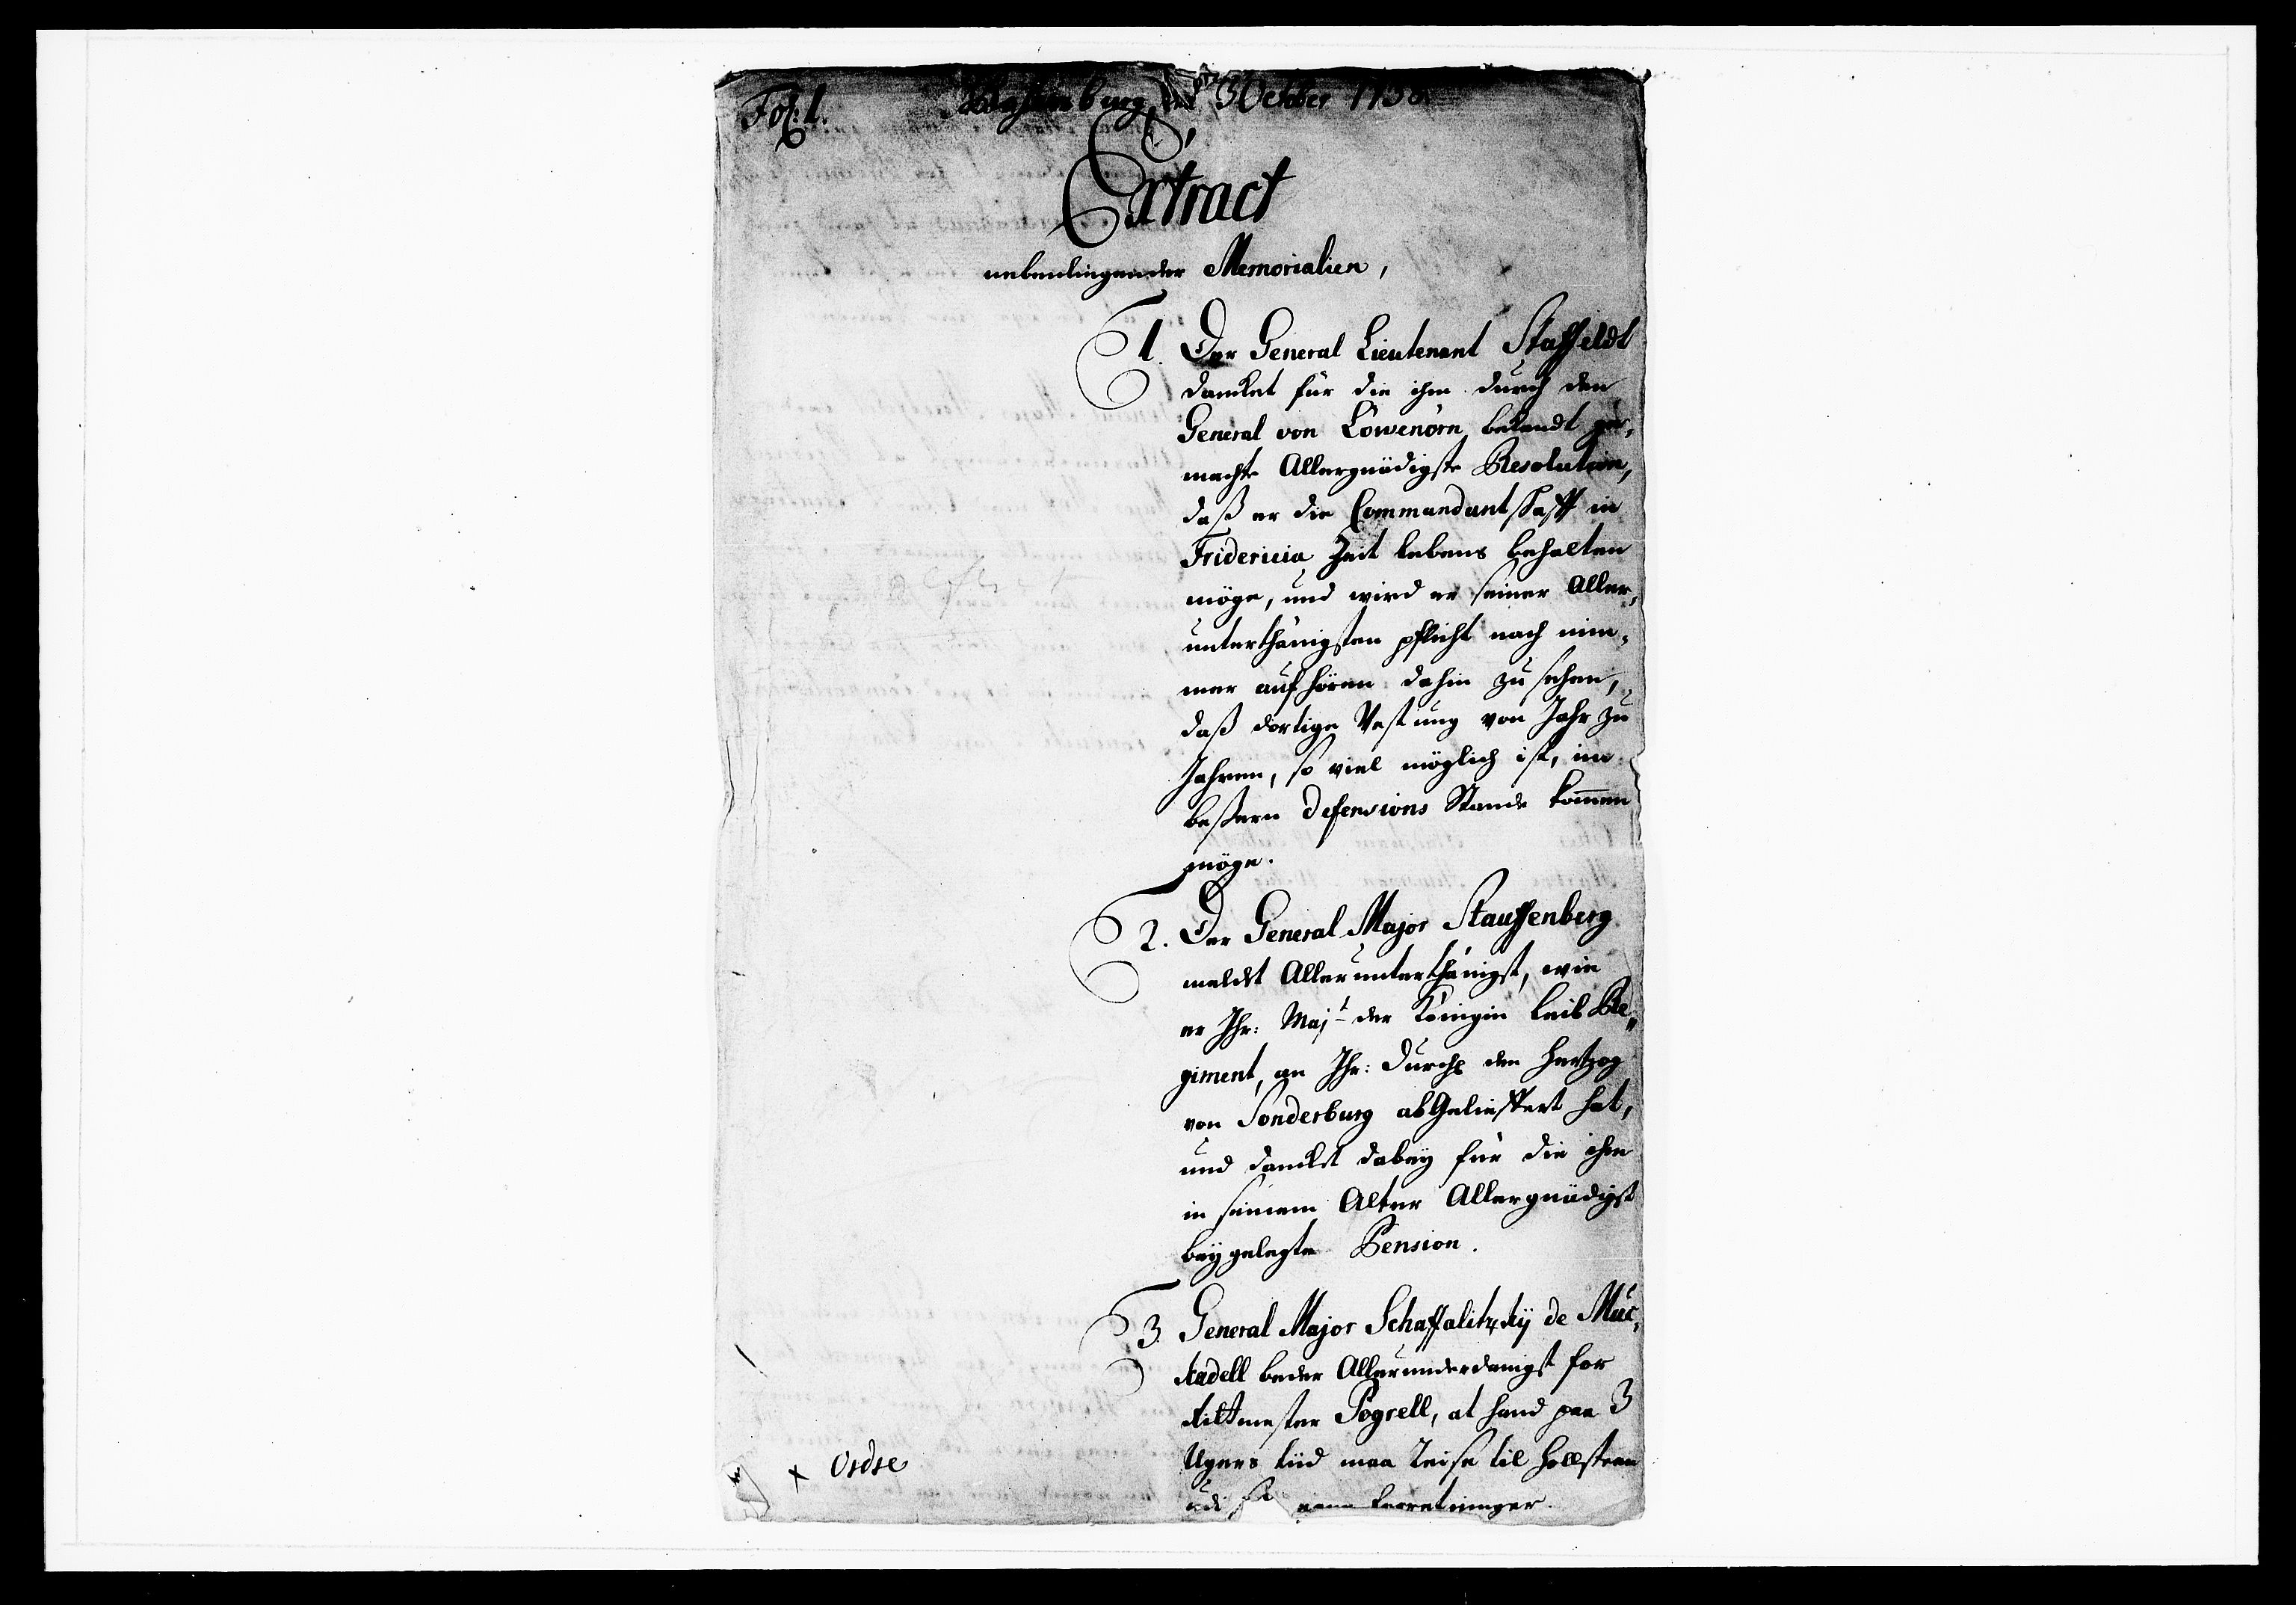 Fol: 1.
3 October 1738
Extract
nebenliegender Memorialien,
1. Der General Lieutenant Staffeldt
dancket für die ihm durch den
General von Löwenörn bekandt ge,
machte Allergnädigste Resolution,
daß er die Commandantschafft in
Fridericia Zeit lebens behalten
möge, und wird er seiner Aller,
unterthänigsten pflicht nach nim,
mer aufhören dahin zu sehen,
daß dortige Vestung von Jahr zu
Jahren, so viel möglich ist, im
beßern Defensions Stande kom̅en
möge.
2. Der General Major Stauffenberg
meldet Allerunterthänigst, wie
er Ihr: Majt der Königin Leib Re„
giment, an Ihr: Durchl den Hertzog
von Sonderburg abGelieffert hat,
und dancket dabey für die ihm
in seinem Alter Allergnädigst
beygelegte Pension.
3. General Major Schaffalitzkÿ de Muc,
kadell beder Allerunderdanigst for
Rittmester Pogrell, at hand paa 3
Ugers tiid maa Reise til Hollsteen
udi sine egne forretninger.
x Ordre